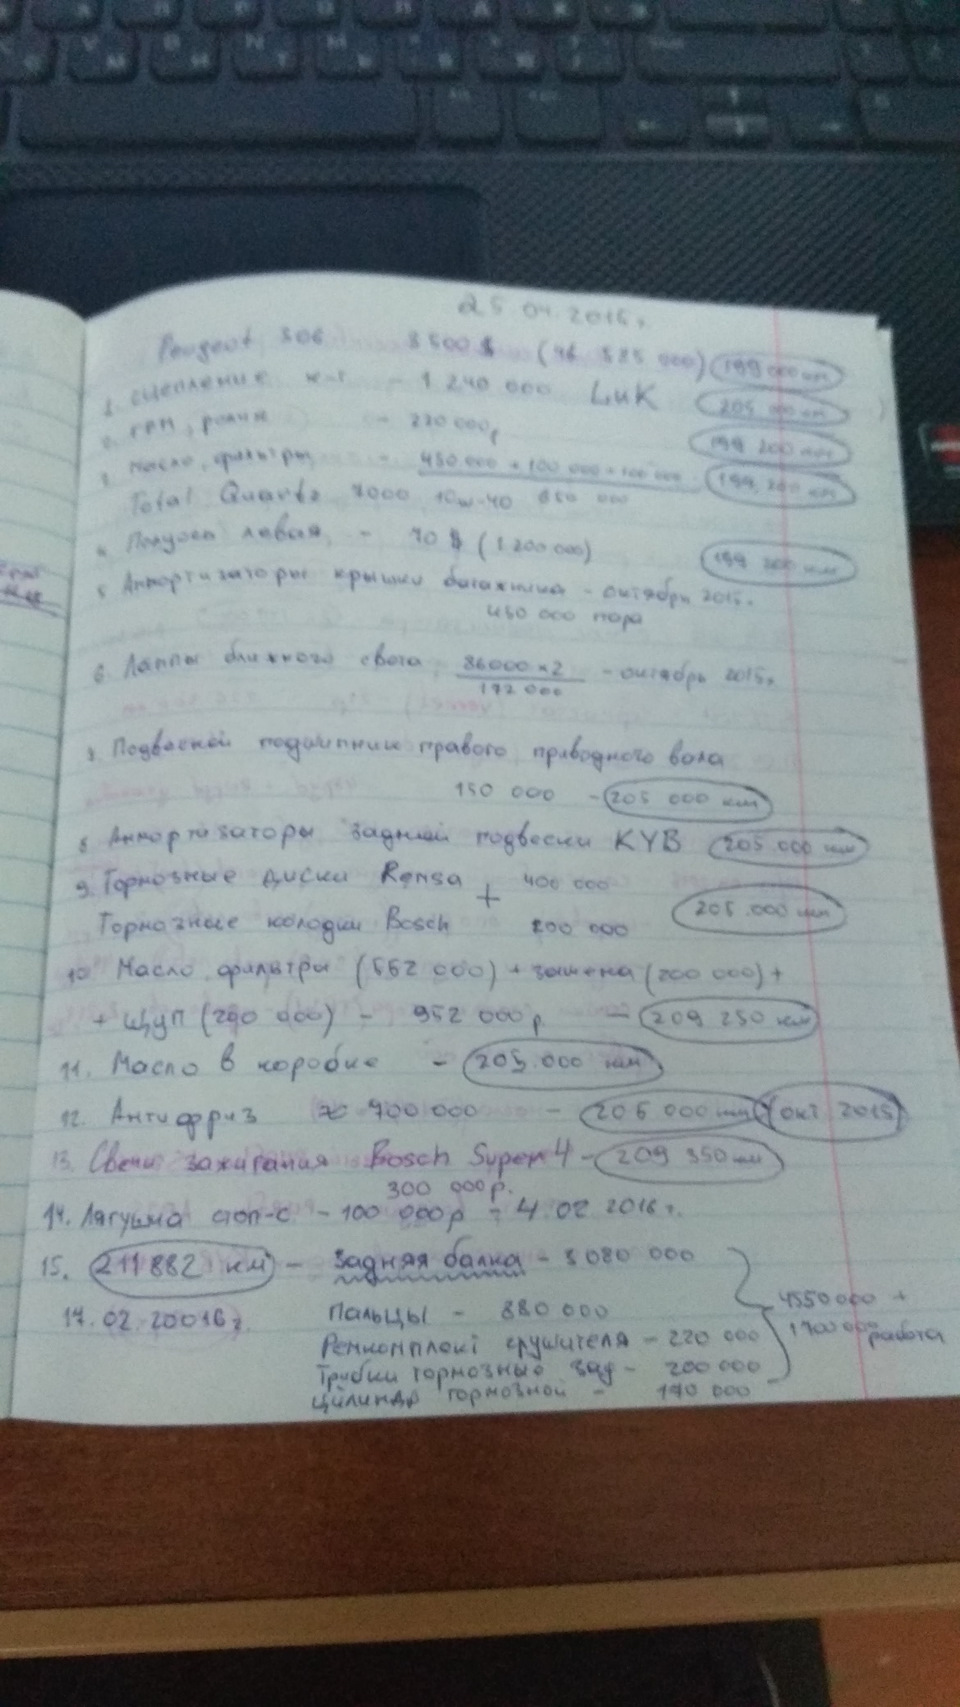 25.04.2015г.
Peugeot 306 3500 $ 199 000 км
1. сцепление к-т - 1 240 000 LuK 205 000 км
2. ГРМ, ролик - 270 000р 199 200 км
3. Масло, фильтры - 450 000 + 100 000 + 100 000 199 200 км
Total Quartz 7000 10w-40 650 000
4. Полуось левая, - 70 $ (1 200 000) 199 200 км
5. Аммортизаторы крышки багажника - октябрь 2015г.
450 000 пара
6. Лампы ближнего света, 86000 x 2 - октябрь 2015г.
172 000
7. Подвесной подшипник правого приводного вала
150 000 - 205 000 км
8. Аммортизаторы задней подвески KYB 205.000 км
9. Тормозные диски Remsa + 400 000
Тормозные колодки Bosch 200 000 205.000 км
10. Масло, фильтры (552 000) + замена (200 000) +
+ Щуп (200 000) - 952 000р. - 209 250 км
11. Масло в коробке - 205.000 км
12. Антифриз 400 000 - 205 000 км (окт 2015)
13. Свечи зажигания Bosch Super 4 - 209 350 км
300 000р.
14. Лягушка стоп-с. - 100 000р - 4.02 2016г.
15. 211882 км - Задняя балка - 3 080 000
17.02.20016г. Пальцы - 880 000
Ремкомплект грушителя - 220 000
Трубки тормозные зад - 200 000
Цилиндр тормозной - 170 000
4550 000 +
1700 000 работа